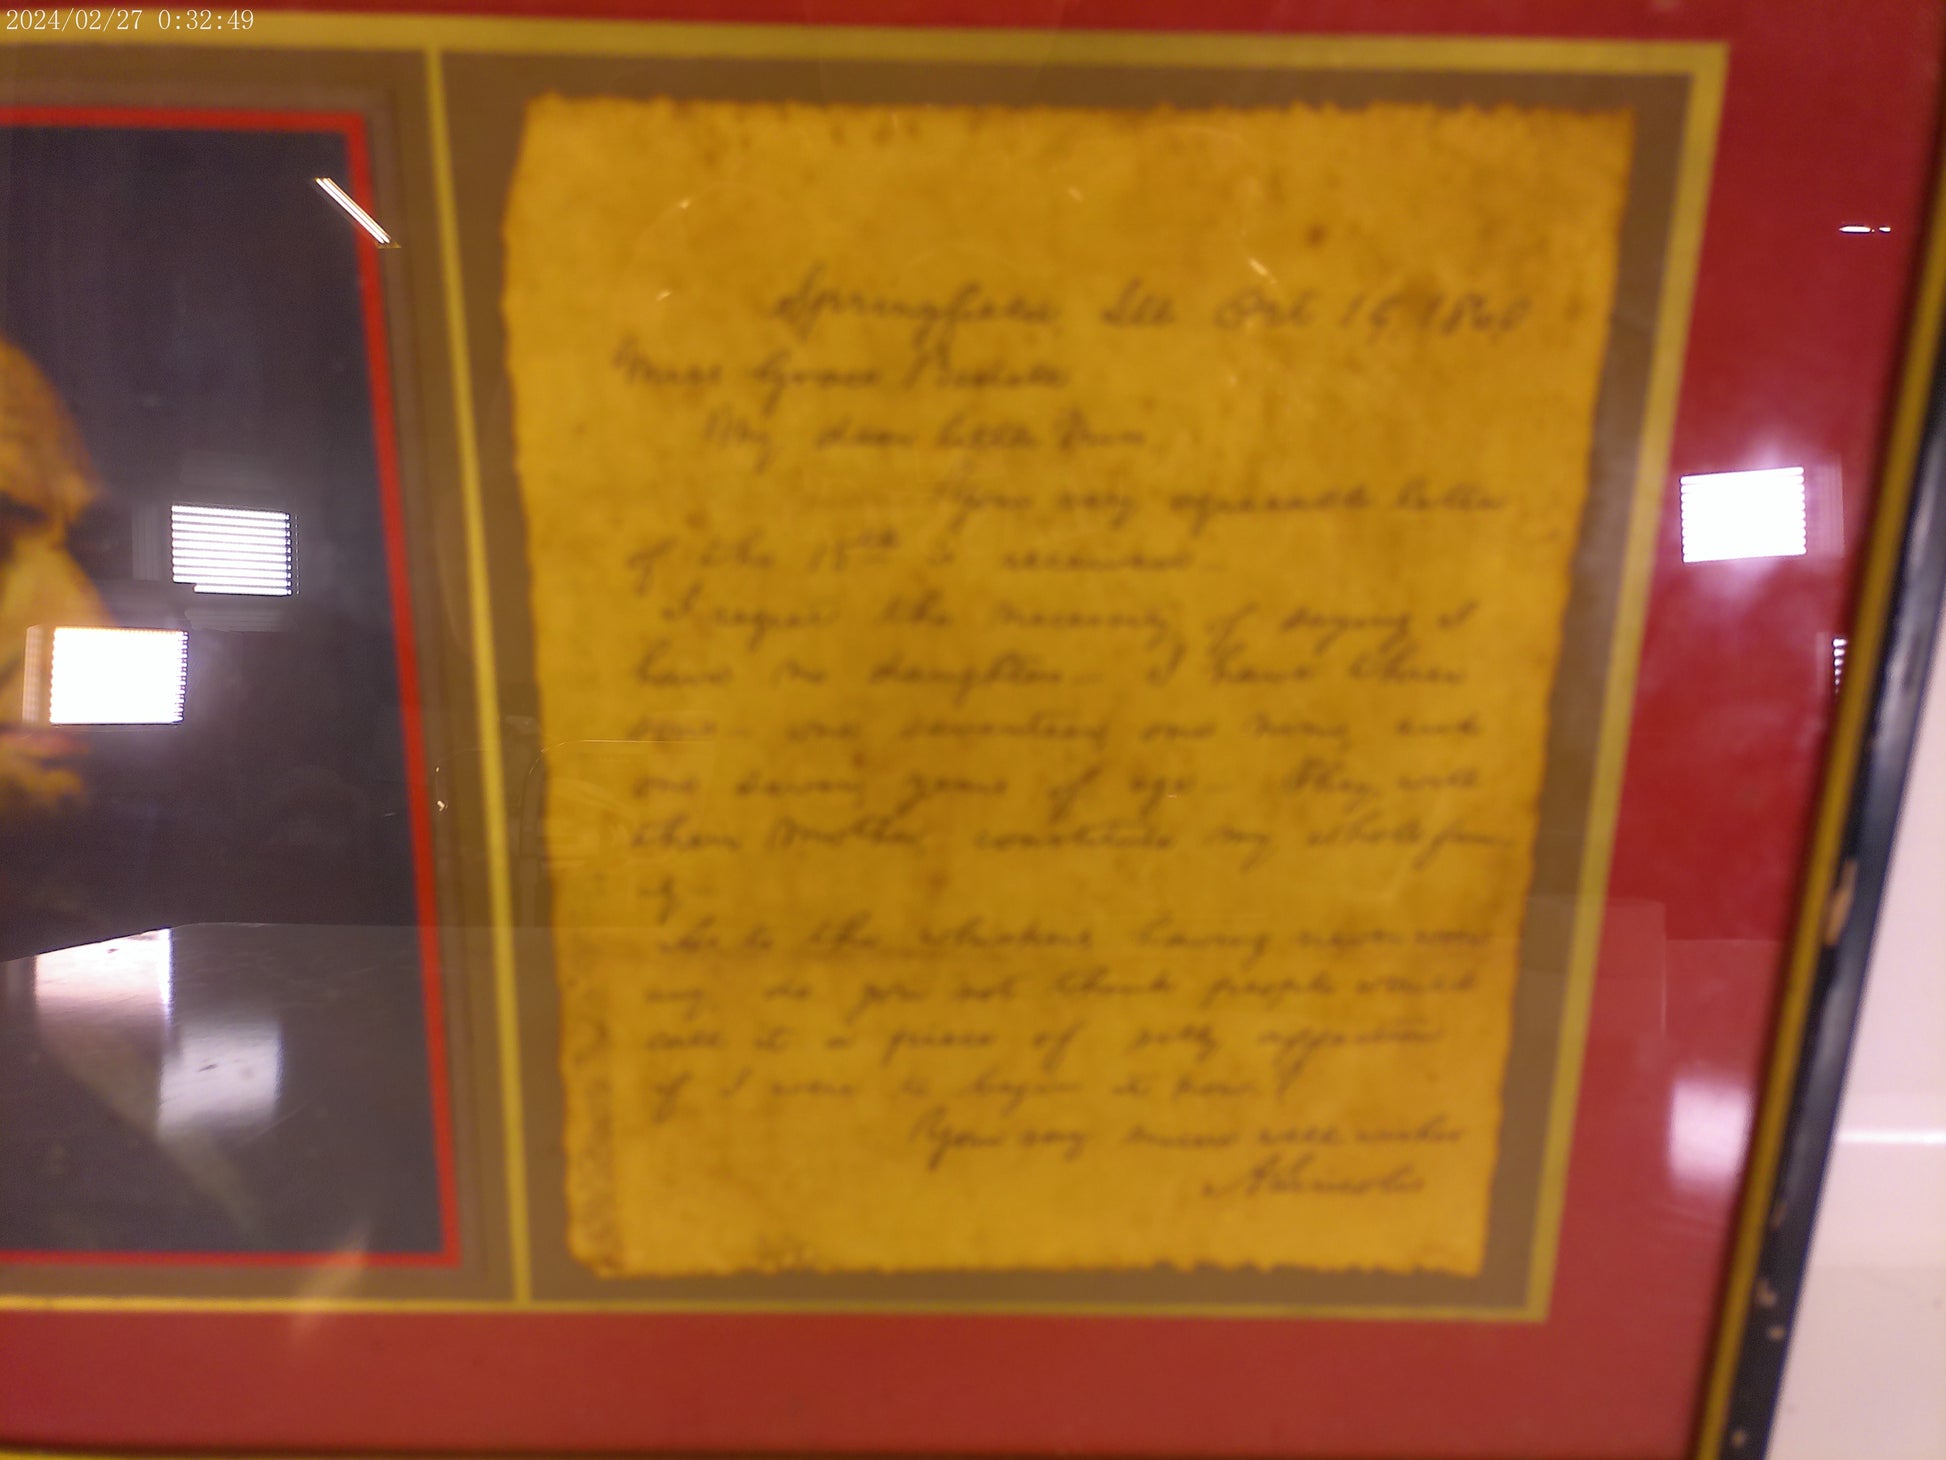 2024/02/27 0:32:49
Springfield, Ill Oct 19, 1860
Miss Grace Bedell
My dear little Miss,
Your very agreeable letter
of the 15th is received—
I regret the necessity of saying I
have no daughters— I have three
sons— one seventeen, one nine, and
one seven, years of age— They, with
their mother, constitute my whole fam
ily—
As to the whiskers having never worn
any, do you not think people would
call it a piece of silly affection
if I were to begin it now?
Your very sincere well wisher
A Lincoln